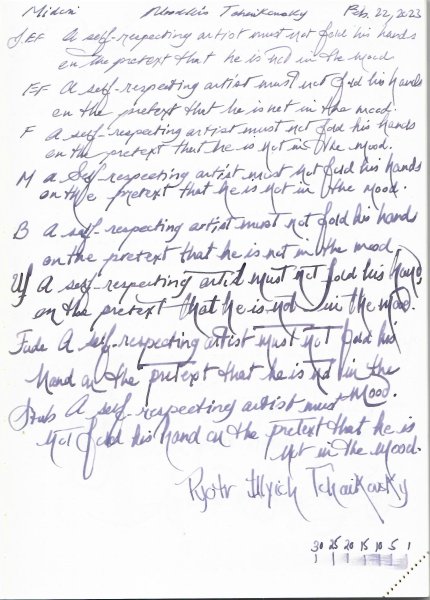 Midori Moodkis Tchaikovsky Feb. 22, 2023
J.EF A self-respecting artist must not fold his hands
on the pretext that he is not in the mood
EF A self-respecting artist must not fold his hands
on the pretext that he is not in the mood.
F A self-respecting artist must not fold his hands
on the pretext that he is not in the mood.
M A self-respecting artist must not fold his hands
on the pretext that he is not in the mood.
B A self-respecting artist must not fold his hands
on the pretext that he is not in the mood.
A self-respecting artist must not fold his hands
on the pretext that he is not in the mood.
Fude A self-respecting artist must not fold his
hand on the pretext that he is not in the
mood.
Stub A self-respecting artist must
not fold his hand on the pretext that he is
not in the mood.
Pyotr Illyich Tchaikovsky
30 25 20 15 10 5 1